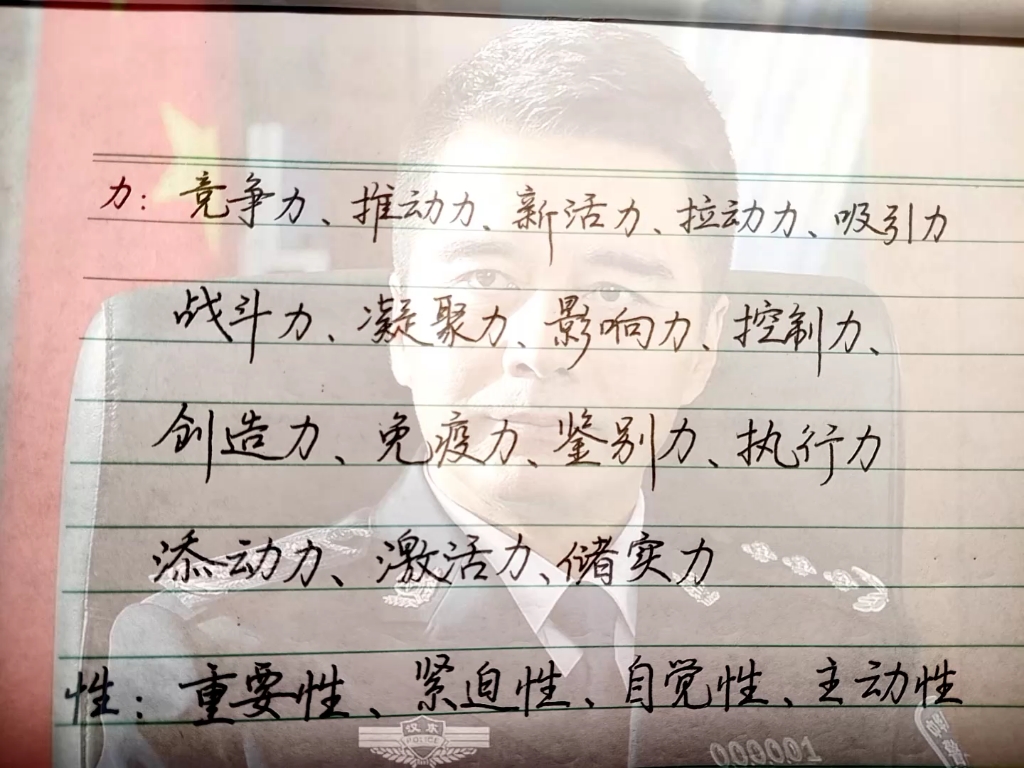 力：竞争力、推动力、新活力、拉动力、吸引力
战斗力、凝聚力、影响力、控制力、
创造力、免疫力、鉴别力、执行力
添动力、激活力、储实力
性：重要性、紧迫性、自觉性、主动性
汉东
POLICE
000001